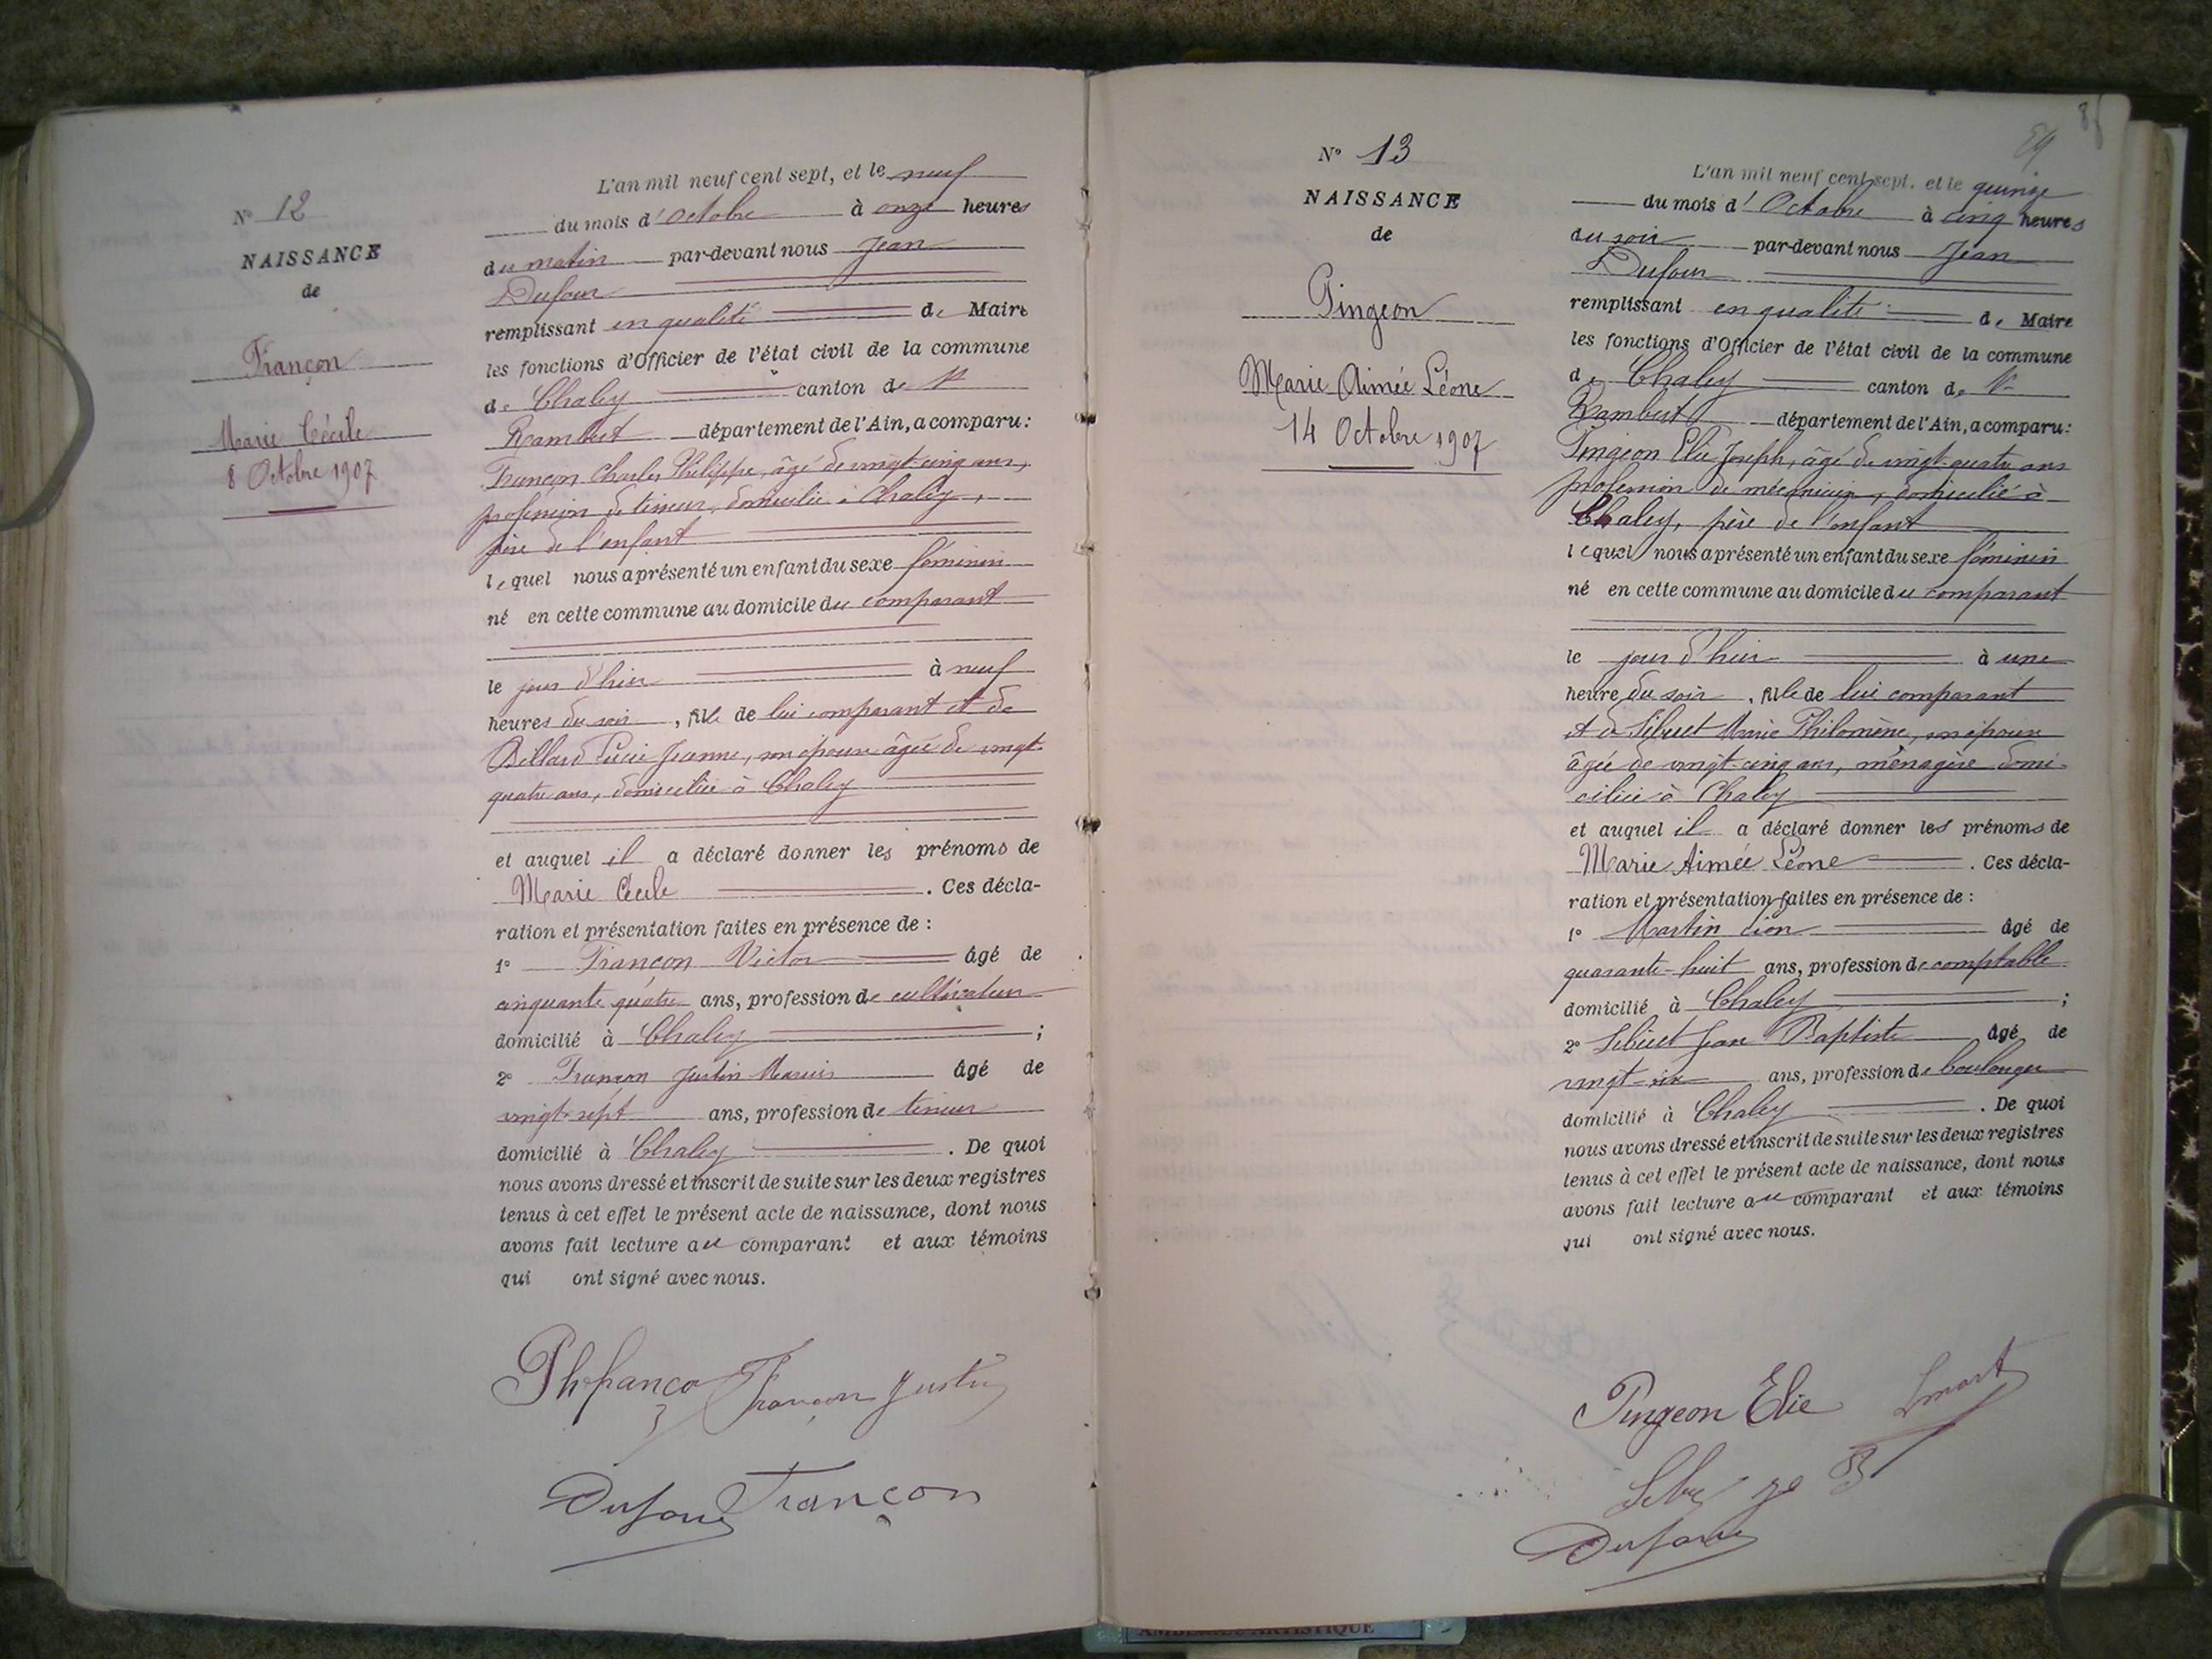 N° 12
NAISSANCE
de
Françon
Marie Cécile
8 Octobre 1907
L'an mil neuf cent sept, et le neuf
du mois d'Octobre à onze heures
du matin par-devant nous Jean
Dufour
remplissant en qualité de Maire
les fonctions d'Officier de l'état civil de la commune
de Chaley canton de St
Rambert département de l'Ain, a comparu:
Françon Charles Philippe, âgé de vingt-cinq ans,
profession de tisseur, domicilié à Chaley,
père de l'enfant
lequel nous a présenté un enfant du sexe féminin
né en cette commune au domicile du comparant
le jour d'hier à neuf
heures du soir, fille de lui comparant et de
Billard Lucie Jeanne, son épouse âgée de vingt-
quatre ans, domiciliée à Chaley
et auquel il a déclaré donner les prénoms de
Marie Cécile. Ces décla-
ration et présentation faites en présence de :
1° Françon Victor âgé de
cinquante quatre ans, profession de cultivateur
domicilié à Chaley ;
2° Françon Justin Marius âgé de
vingt-sept ans, profession de tisseur
domicilié à Chaley. De quoi
nous avons dressé et inscrit de suite sur les deux registres
tenus à cet effet le présent acte de naissance, dont nous
avons fait lecture au comparant et aux témoins
qui ont signé avec nous.
Françon Justin
Dufour Françon
84
N° 13
NAISSANCE
de
Pingeon
Marie Aimée Léone
14 Octobre 1907
L'an mil neuf cent sept, et le quinze
du mois d'Octobre à cinq heures
du soir par-devant nous Jean
Dufour
remplissant en qualité de Maire
les fonctions d'Officier de l'état civil de la commune
de Chaley canton de St
Rambert département de l'Ain, a comparu:
Pingeon Elie Joseph, âgé de vingt-quatre ans
profession de mécanicien, domicilié à
Chaley, père de l'enfant
lequel nous a présenté un enfant du sexe féminin
né en cette commune au domicile du comparant
le jour d'hier à une
heure du soir, fille de lui comparant
et de Sibuet Marie Philomène, son épouse
âgée de vingt-cinq ans, ménagère domi-
ciliée à Chaley
et auquel il a déclaré donner les prénoms de
Marie Aimée Léone. Ces décla-
ration et présentation faites en présence de :
1° Martin Léon âgé de
quarante-huit ans, profession de comptable
domicilié à Chaley ;
2° Sibuet Jean Baptiste âgé de
vingt-six ans, profession de boulanger
domicilié à Chaley. De quoi
nous avons dressé et inscrit de suite sur les deux registres
tenus à cet effet le présent acte de naissance, dont nous
avons fait lecture au comparant et aux témoins
qui ont signé avec nous.
Pingeon Elie
Dufour